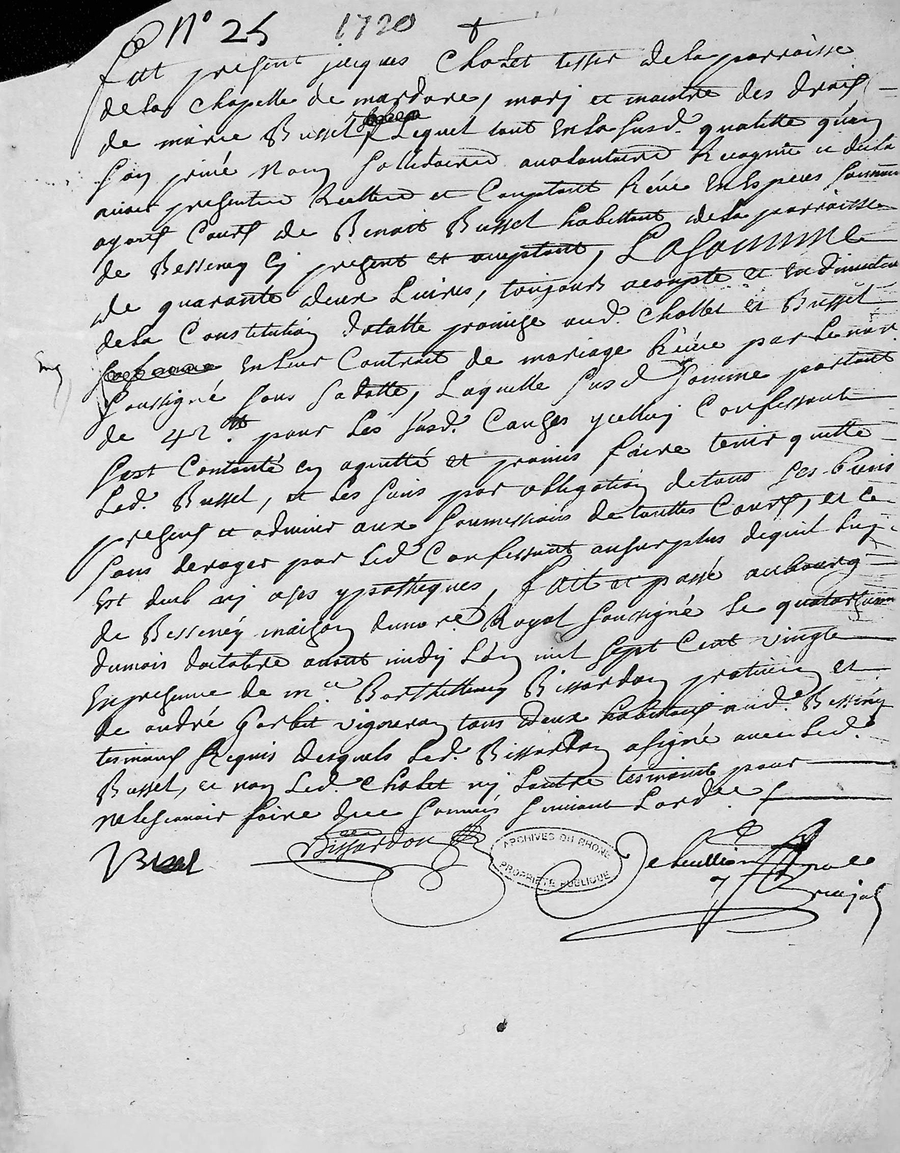 Ce N° 25 1720 +
fut present jacques Cholet tessier de la parroisse
de la Chapelle de mardore, mary et maistre des droits
de marie Bussel lequel tant en la susd. qualitté qu'en
son privé nom solidaire a volontaire Recognu
ayant Cours de Benoit Bussel habittant de la parroisse
de Besseney cy present et aceptant, La Somme
de quarante deux Livres, toujours acompte et en diminution
de la Constitution dotalle promise aud. Chollet et Bussel
en leur Contrat de mariage Reçeu par le no.re
soussigné sous sa datte, Laquelle susd somme portant
de 42 tt pour les susd. Causes ycelluy Confessant
s'est Contanté en a quitté et promis faire tenir quitte
Led. Bussel, et les siens par obligation de tous ses biens
presens et advenir aux soumissions de touttes Cours, et ce
sans deroger par led Confessant au surplus de qui luy
est deub ny a ses ypotheques, fait et passé au bourg
de Besseney maison du no.re Royal soussigné le quatorzieme
du mois d'octobre avant midy L'an mil sept Cent vingt
en presence de m.re Barthellemy Bissardon praticien et
de andré vigneron tous deux habitans aud. Besseney
tesmoins Requis desquels led. Bissardon a signé avec led.
Bussel, ce non led Cholet ny l'autre tesmoint pour
ne le sçavoir faire de ce sommés suivant L'ord.ce
Bissardon
ARCHIVES DU RHONE
PROPRIÉTÉ PUBLIQUE